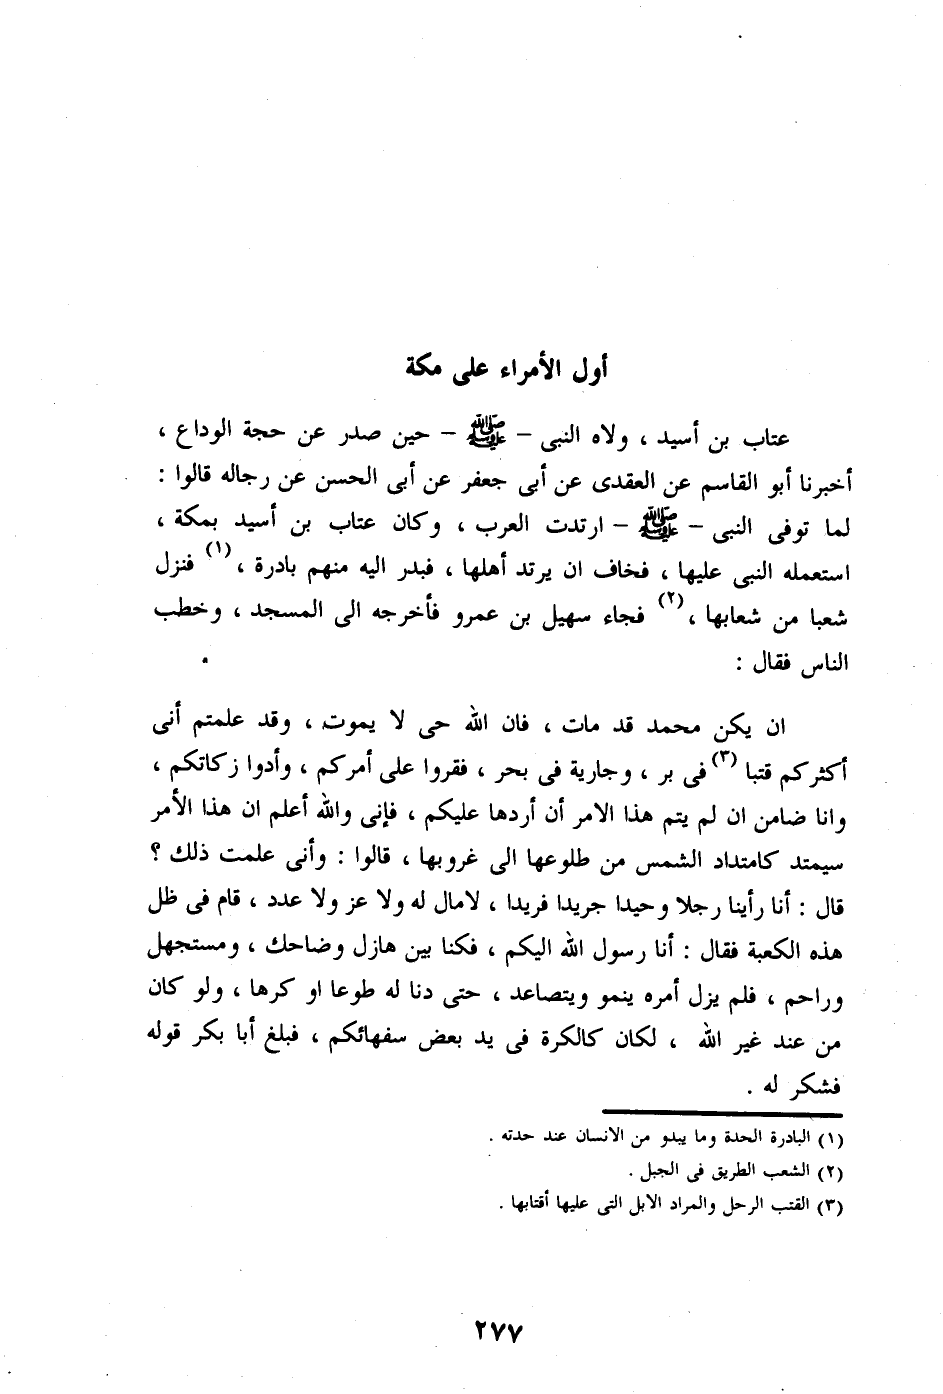 أول الأمراء على مكة
عتاب بن أسيد ، ولاه النبى – ﷺ – حين صدر عن حجة الوداع ،
أخبرنا أبو القاسم عن العقدى عن أبى جعفر عن أبى الحسن عن رجاله قالوا :
لما توفى النبى – ﷺ – ارتدت العرب ، وكان عتاب بن أسيد بمكة ،
استعمله النبى عليها ، فخاف ان يرتد أهلها ، فبدر اليه منهم بادرة ، (١) فنزل
شعبا من شعابها ، (٢) فجاء سهيل بن عمرو فأخرجه الى المسجد ، وخطب
الناس فقال :
ان يكن محمد قد مات ، فان الله حى لا يموت ، وقد علمتم أنى
أكثركم قتبا (٣) فى بر ، وجارية فى بحر ، فقروا على أمركم ، وأدوا زكاتكم ،
وانا ضامن ان لم يتم هذا الامر أن أردها عليكم ، فإنى والله أعلم ان هذا الأمر
سيمتد كامتداد الشمس من طلوعها الى غروبها ، قالوا : وأنى علمت ذلك ؟
قال : أنا رأينا رجلا وحيدا جريدا فريدا ، لامال له ولا عز ولا عدد ، قام فى ظل
هذه الكعبة فقال : أنا رسول الله اليكم ، فكنا بين هازل وضاحك ، ومستجهل
وراحم ، فلم يزل أمره ينمو ويتصاعد ، حتى دنا له طوعا او كرها ، ولو كان
من عند غير الله ، لكان كالكرة فى يد بعض سفهائكم ، فبلغ أبا بكر قوله
فشكر له .
(١) البادرة الحدة وما يبدو من الانسان عند حدته .
(٢) الشعب الطريق فى الجبل .
(٣) القتب الرحل والمراد الابل التى عليها أقتابها .
٢٧٧